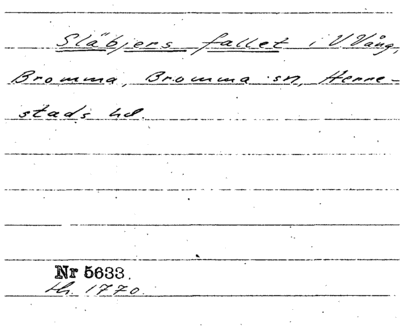 Släbjers fallet i V Vång,
Bromma, Bromma sn, Herre-
stads hd.
Nr 5633.
th. 1770.